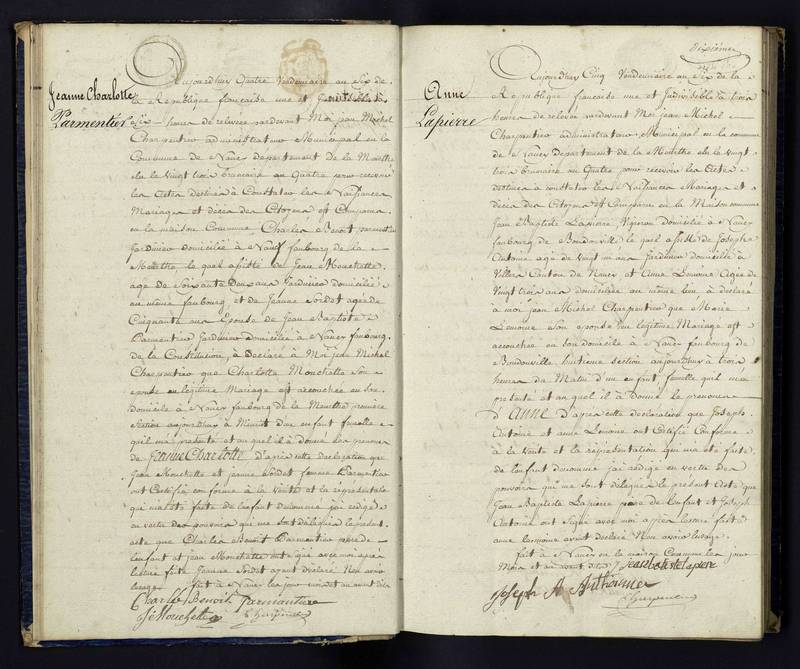 Jeanne Charlotte
Parmentier
Aujourdhuy Quatre Vendemiaire an Six de
la Republique francaise une et Indivisible à
Six heures de relevée pardevant Moi jean Michel
Charpentier administrateur Municipal en la
Commune de Nancy departement de la Meurthe
elu le vingt trois brumaire an Quatre pour recevoir
les Actes destinés à Constater les Naissances
Mariages et décès des Citoyens est Comparu
en la maison Commune Charles Benoit parmentier
Jardinier domicilié à Nancy faubourg de la
Meurthe lequel assisté de Jean Mouchette
agé de Soixante Dix ans Jardinier domicilié
au même faubourg et de Jeanne Sordet agée de
Cinquante ans Epouse de Jean Baptiste
Parmentier Jardinier domiciliée à Nancy faubourg
de la Constitution, à Declaré à Moi jean Michel
Charpentier que Charlotte Mouchette Son
epouse en legitime Mariage est accouchée en Son
domicile à Nancy faubourg de la Meurthe première
Section aujourdhuy à Minuit d'un enfant femelle
qu'il m'a presenté et auquel il à donné les prenoms
de Jeanne Charlotte d'après cette declaration que
Jean Mouchette et jeanne Sordet femme Parmentier
ont Certifié conforme à la Verité et la représentation
qui m'a été faite de l'enfant denommé jai redigé
en vertu des pouvoirs qui me Sont délégués le present
acte que Charles Benoit Parmentier pere de
l'enfant et jean Mouchette ont Signé avec moi après
lecture faite Jeanne Sordet ayant declaré Non avoir
l'usage. fait à Nancy les jour mois et an avant dits
Charle Benoit Parmantier
J Mouchette Charpentier
dixième
Anne
Lapierre
Aujourdhuy Cinq Vendemiaire an Six de la
Republique francaise une et Indivisible à trois
heures de relevée pardevant Moi jean Michel
Charpentier administrateur Municipal en la commune
de Nancy departement de la Meurthe elu le vingt
trois brumaire an Quatre pour recevoir les Actes
destinés à constater les Naissances Mariages et
décès des Citoyens est Comparu en la Maison commune
Jean Baptiste Lapierre Vigneron domicilié à Nancy
faubourg de Boudonville lequel assisté de Joseph
Antoine agé de vingt ans Jardinier domicilié à
Villers Canton de Nancy et Anne Lemoine Agée de
Vingt trois ans domiciliée au même lieu à declaré
à moi jean Michel Charpentier que Marie
Lemoine Son epouse en legitime Mariage est
accouchée en Son domicile à Nancy faubourg de
Boudonville huitieme Section aujourdhuy à trois
heures du Matin d'un enfant femelle quil m'a
presenté et auquel il à donné le prenom
d'Anne d'après cette declaration que Joseph
Antoine et anne Lemoine ont Certifié Conforme
à la Verité et la représentation qui m'a été faite
de l'enfant denommé jai redigé en vertu des
pouvoirs qui me Sont délégués le present acte que
Jean Baptiste Lapierre pere de l'enfant et Joseph
Antoine ont Signé avec moi après lecture faite
anne Lemoine ayant declaré Non avoir l'usage.
fait à Nancy en la maison Commune les jour
Mois et an avant dits Jean Batiste Lapiere
Joseph A Anthoinne
Charpentier